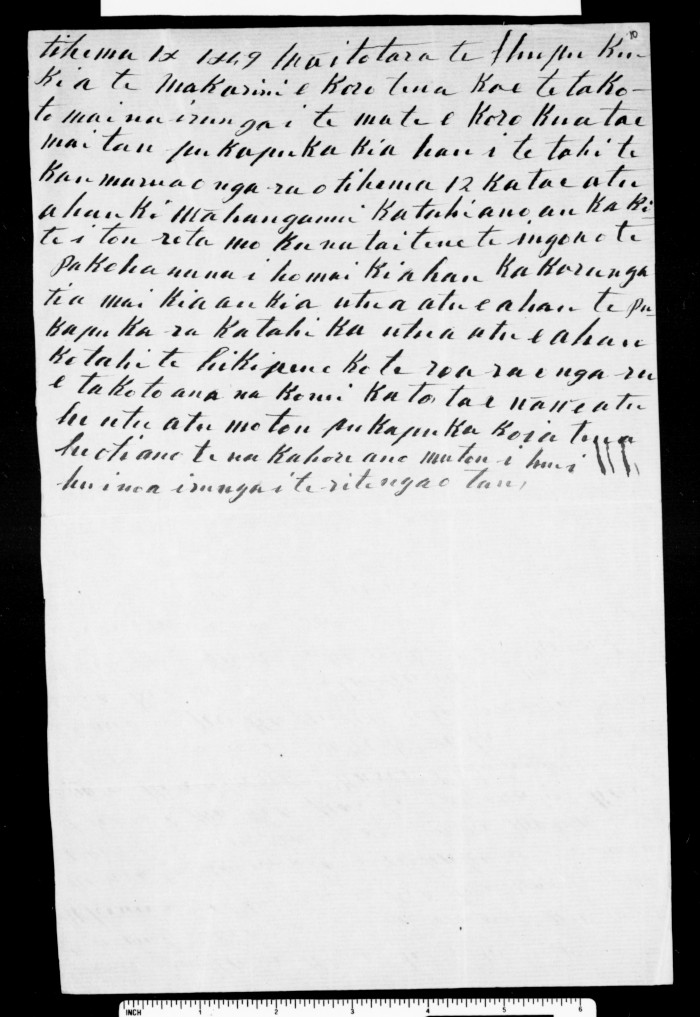 10
tihema 1x 1x49 Waitotara te
Kia te Makarini e Koro tena Koe te tako-
to mai na i runga i te mate e Koro Kua tae
mai tau pukapuka kia hau i te tahi te
Kau marua o nga ra o tihema 12 Ka tae atu
ahau Ki Wahanganui Katahi ano au Ka Ki-
te i tou reta mo Ku na tai tene te ingoa o te
pakeha nana i homai Kia hau Ka Korunga
tia mai Kia au Kia utua atu e ahau te pu-
kapuka ra Katahi Ka utua atu e ahau
Kotahi te hikipene Ko te roa ra e nga ra
e takoto ana na Konei Ka to tae wawe atu
he utu atu mo tou pukapuka Koia tena
heoti ano te na Kahore ano mutou i hui
huinoa i runga i te ritenga o tau,